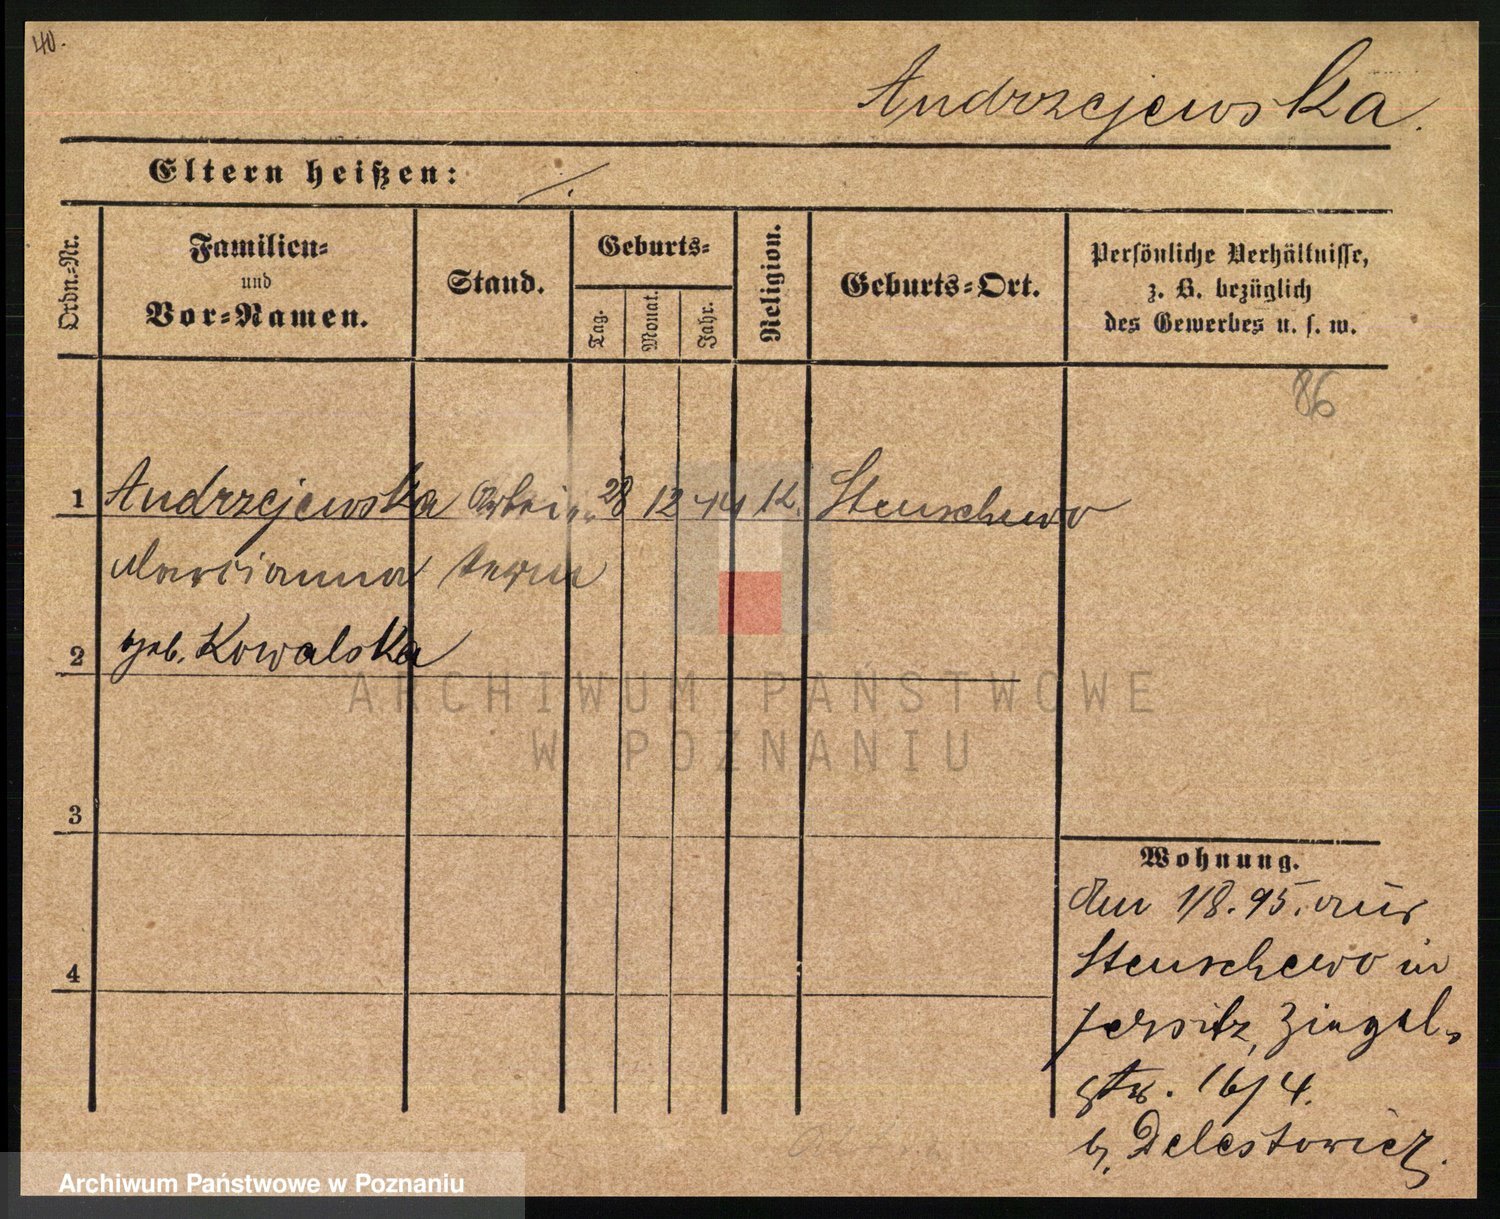 40.
Andrzejewska.
Eltern heißen: /.
Ordn.=Nr.
Familien=
und
Vor=Namen.
Stand.
Geburts=
Tag.
Monat.
Jahr.
Religion.
Geburts=Ort.
Persönliche Verhältnisse,
z. B. bezüglich
des Gewerbes u. s. w.
86
1 Andrzejewska Arbei= 28 12 44 K. Stenschewo
Marcianna
2 geb. Kowalska
ARCHIWUM PAŃSTWOWE
W POZNANIU
3
4
Wohnung.
Am 1/8.95. aus
Stenschewo in
Jersitz, Ziegel=
str. 16/4.
b. Delestowicz.
Archiwum Państwowe w Poznaniu